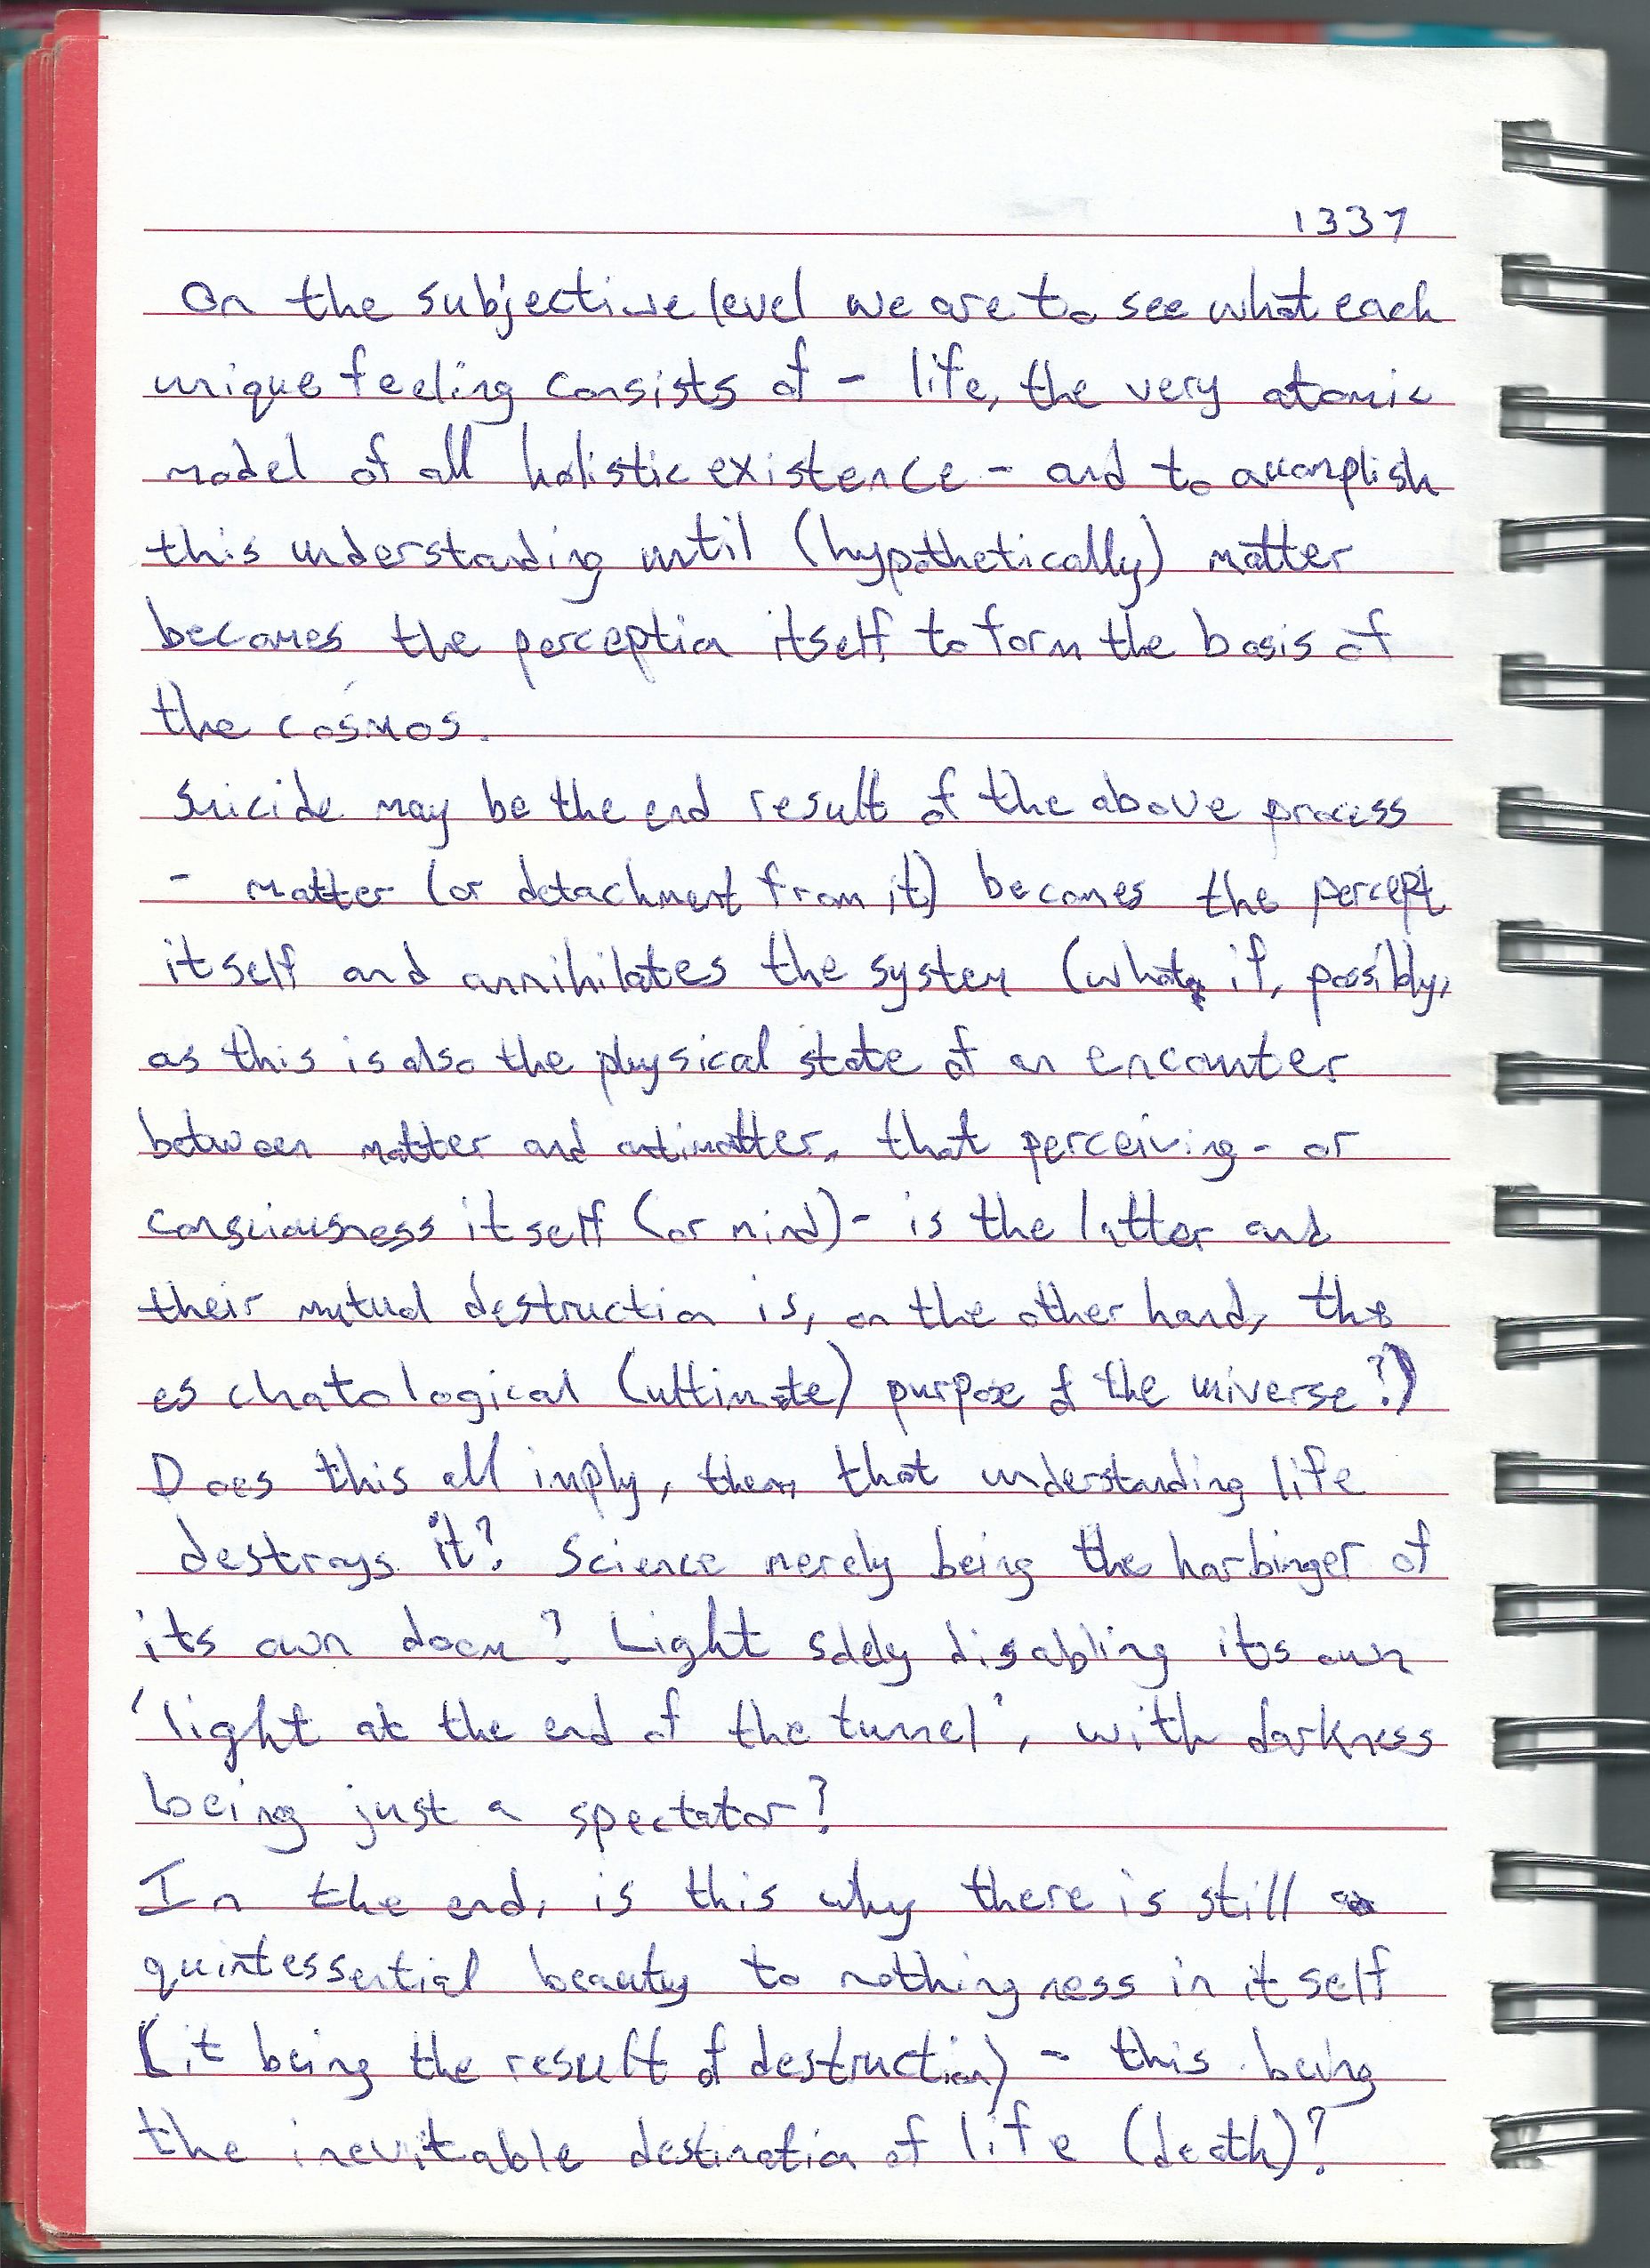 1337
On the subjective level we are to see what each
unique feeling consists of - life, the very atomic
model of all holistic existence - and to accomplish
this understanding until (hypothetically) matter
becomes the perception itself to form the basis of
the cosmos.
Suicide may be the end result of the above process
- matter (or detachment from it) becomes the percept
itself and annihilates the system (what if, possibly,
as this is also the physical state of an encounter
between matter and antimatter, that perceiving - or
consciousness itself (or mind) - is the latter and
their mutual destruction is, on the other hand, the
eschatological (ultimate) purpose of the universe?)
Does this all imply, then, that understanding life
destroys it? Science merely being the harbinger of
its own doom? Light solely disabling its own
'light at the end of the tunnel', with darkness
being just a spectator?
In the end, is this why there is still a
quintessential beauty to nothingness in itself
(it being the result of destruction) - this being
the inevitable destination of life (death)?